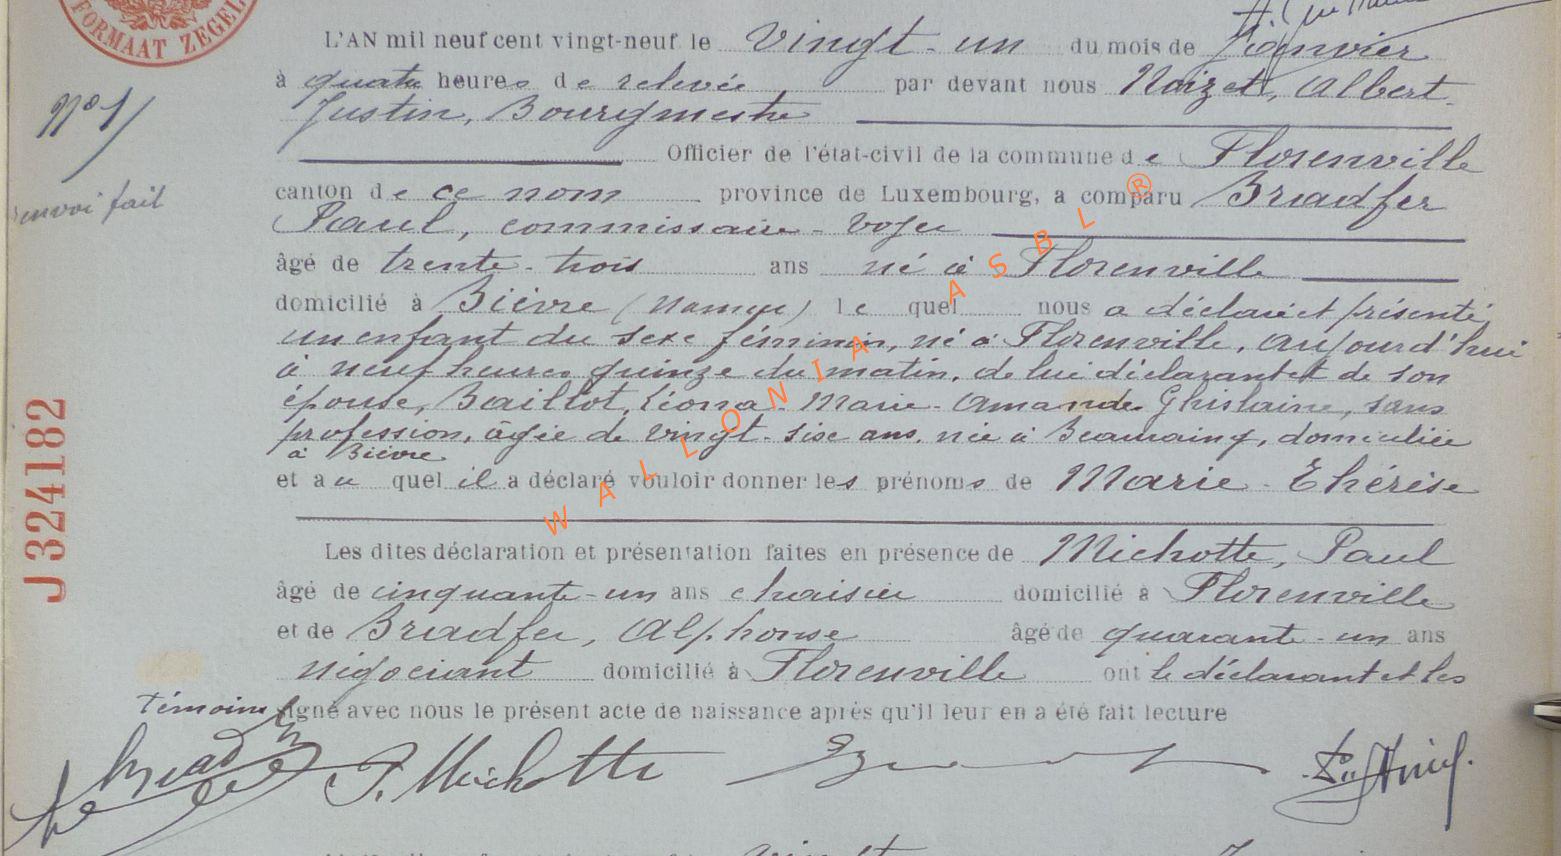 FORMAAT ZEGEL
L'AN mil neuf cent vingt-neuf le vingt-un du mois de Janvier
à quatre heures de relevée par devant nous Noizet, Albert
Justin, Bourgmestre
N° 1/
Officier de l'état-civil de la commune de Florenville
canton de ce nom province de Luxembourg, a comparu Briadfer
envoi fait
Paul, commissaire-voyer
âgé de trente-trois ans né à Florenville
domicilié à Bièvre (Namur) le quel nous a déclaré et présenté
un enfant du sexe féminin, né à Florenville, aujourd'hui
à neuf heures quinze du matin, de lui déclarant et de son
épouse, Baillot, Léona-Marie-Amande Ghislaine, sans
profession, âgée de vingt-six ans, née à, domiciliée
à Bièvre
et au quel il a déclaré vouloir donner les prénoms de Marie-Thérèse
J 324182
Les dites déclaration et présentation faites en présence de Michotte, Paul
âgé de cinquante-un ans chaisier domicilié à Florenville
et de Briadfer, Alphonse âgé de quarante-un ans
négociant domicilié à Florenville ont le déclarant et les
témoins signé avec nous le présent acte de naissance après qu'il leur en a été fait lecture
P. Michotte
WALLONIA ASBL ®